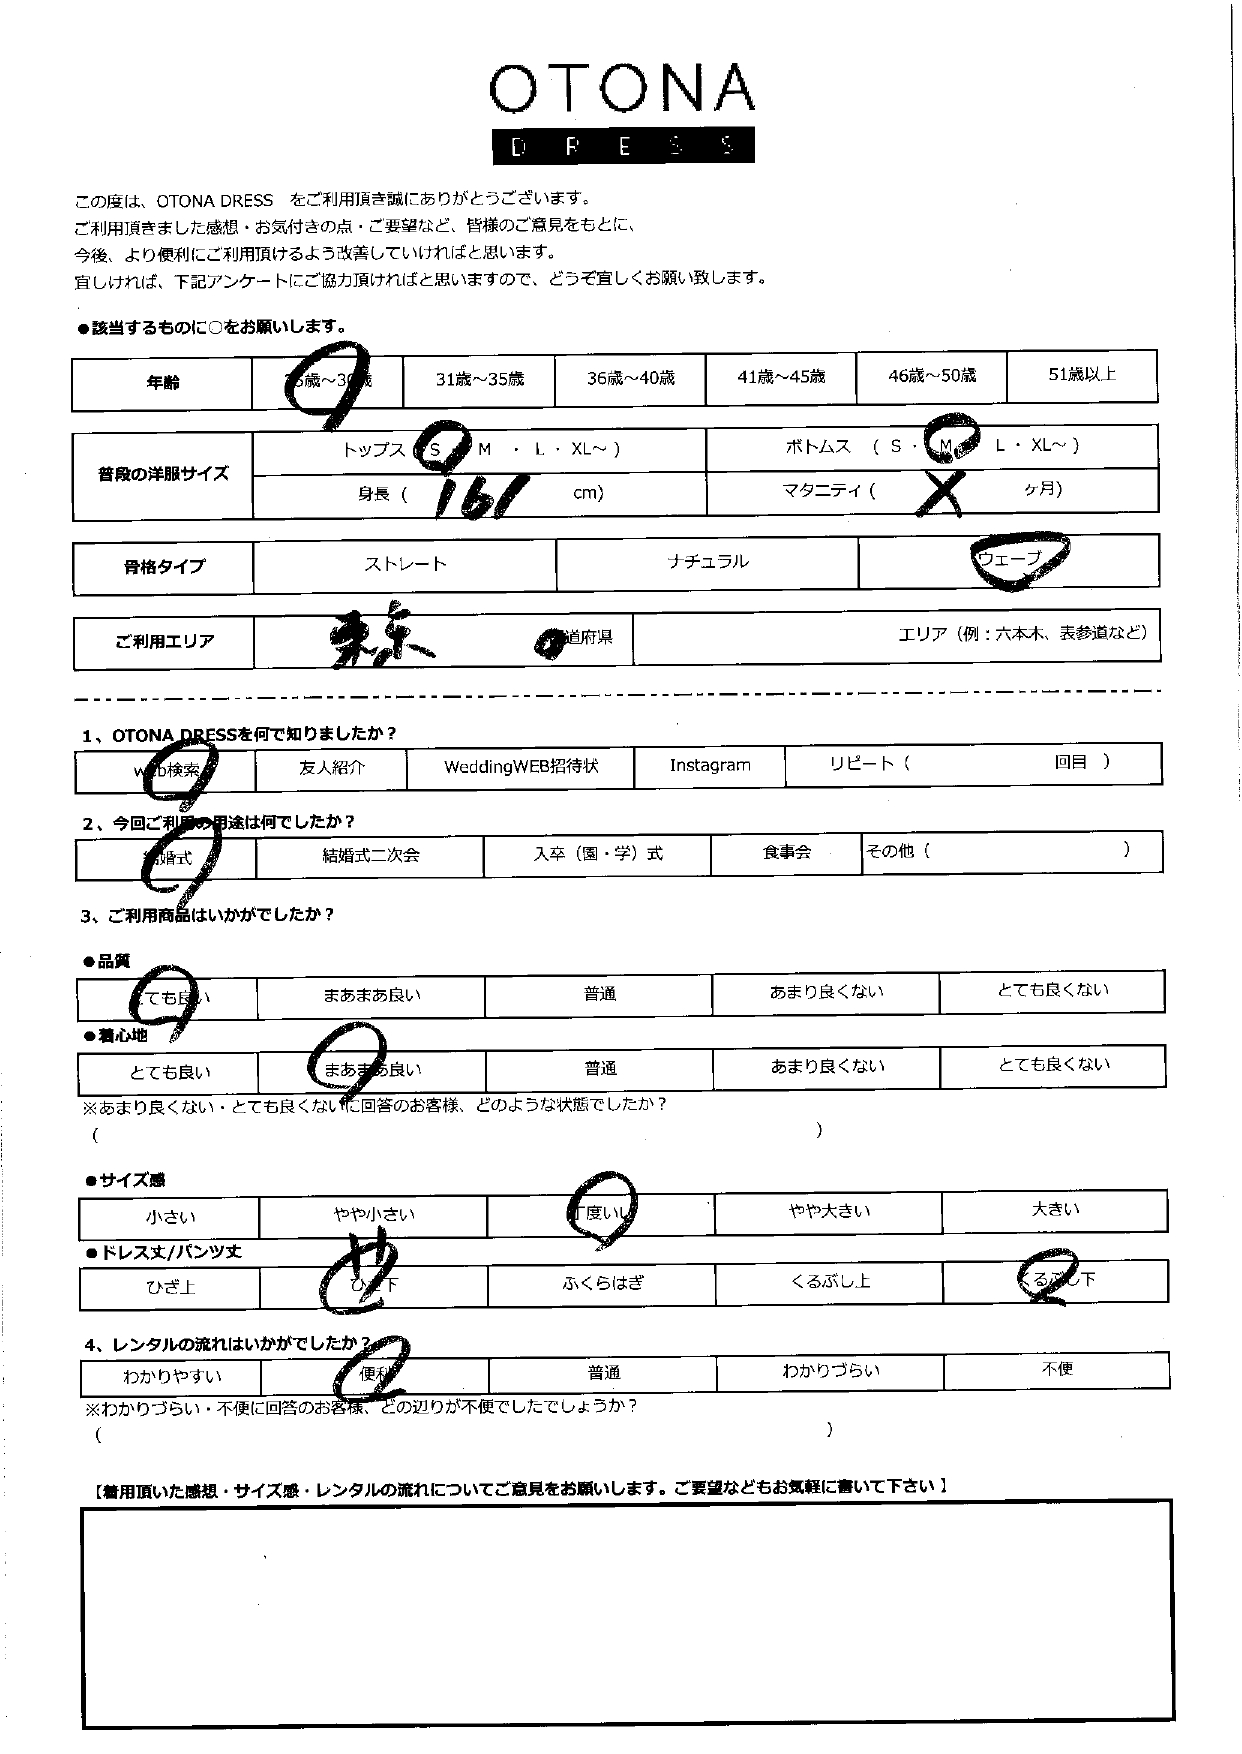 OTONA
DRESS
この度は、OTONA DRESS をご利用頂き誠にありがとうございます。
ご利用頂きました感想・お気付きの点・ご要望など、皆様のご意見をもとに、
今後、より便利にご利用頂けるよう改善していければと思います。
宜しければ、下記アンケートにご協力頂ければと思いますので、どうぞ宜しくお願い致します。
●該当するものに○をお願いします。
年齢 歳～30歳 31歳～35歳 36歳～40歳 41歳～45歳 46歳～50歳 51歳以上
普段の洋服サイズ トップス S M ・ L ・ XL～ ) ボトムス ( S ・ M L ・ XL～ )
身長 ( 161 cm) マタニティ ( X ヶ月)
骨格タイプ ストレート ナチュラル ウェーブ
ご利用エリア 東京 道府県 エリア（例：六本木、表参道など）
1、OTONA DRESSを何で知りましたか？
web検索 友人紹介 WeddingWEB招待状 Instagram リピート ( 回目 )
2、今回ご利用の用途は何でしたか？
結婚式 結婚式二次会 入卒（園・学）式 食事会 その他 ( )
3、ご利用商品はいかがでしたか？
●品質
とても良い まあまあ良い 普通 あまり良くない とても良くない
●着心地
とても良い まあまあ良い 普通 あまり良くない とても良くない
※あまり良くない・とても良くないに回答のお客様、どのような状態でしたか？
( )
●サイズ感
小さい やや小さい 丁度いい やや大きい 大きい
●ドレス丈/パンツ丈
ひざ上 ひざ下 ふくらはぎ くるぶし上 くるぶし下
4、レンタルの流れはいかがでしたか？
わかりやすい 便利 普通 わかりづらい 不便
※わかりづらい・不便に回答のお客様、どの辺りが不便でしたでしょうか？
( )
【着用頂いた感想・サイズ感・レンタルの流れについてご意見をお願いします。ご要望などもお気軽に書いて下さい】